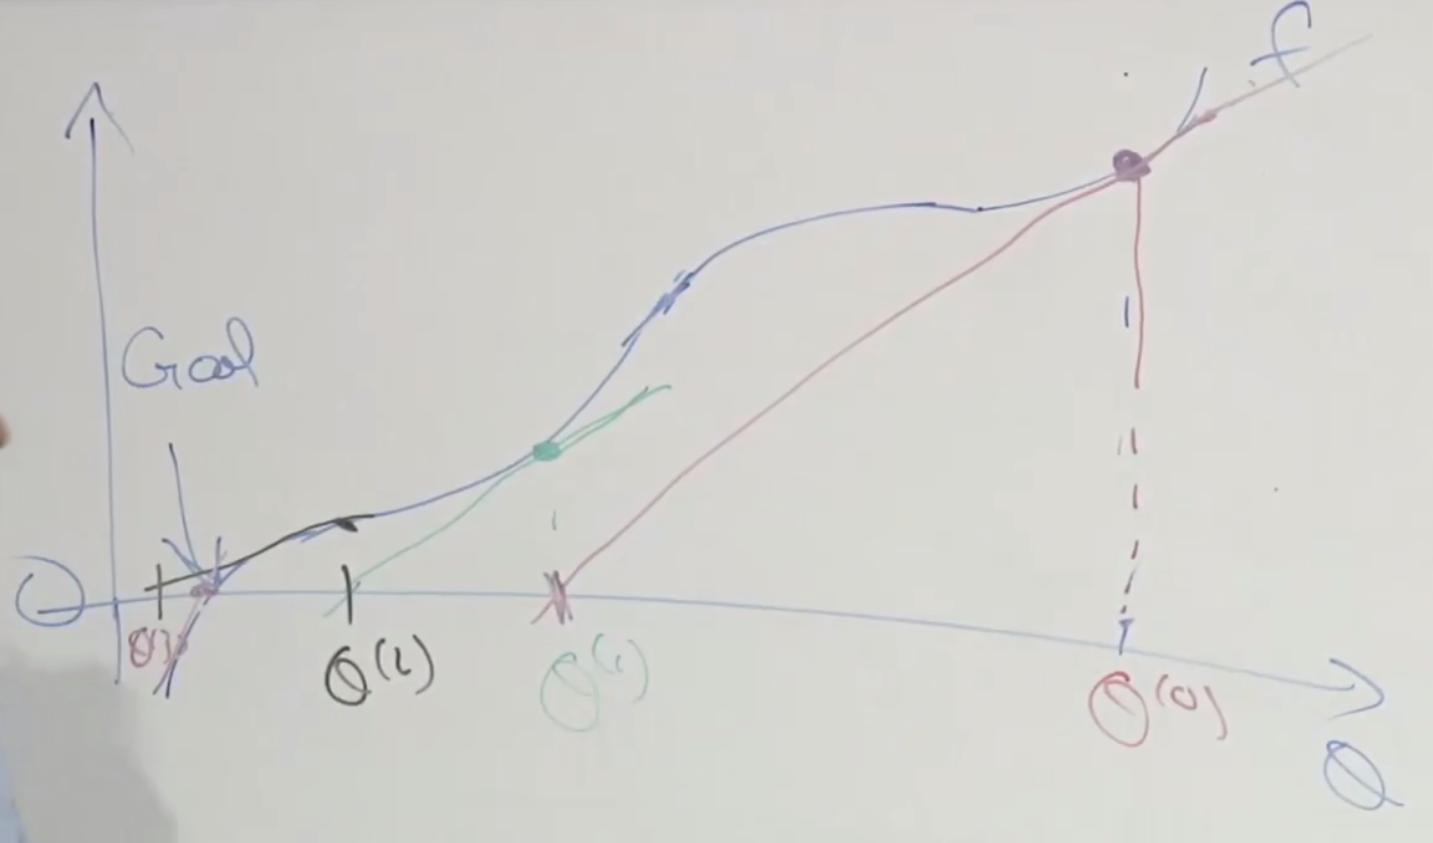 f
Goal
O
θ(3)
θ(2)
θ(1)
θ(0)
θ